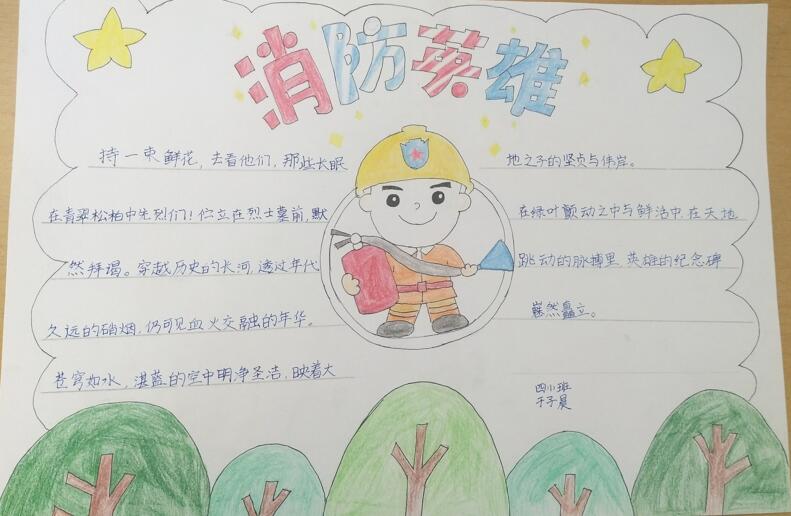 消防英雄
持一束鲜花,去看他们,那些长眠
在青翠松柏中先烈们!伫立在烈士墓前,默
然拜谒。穿越历史的长河,透过年代
久远的硝烟,仍可见血火交融的年华。
苍穹如水,湛蓝的空中明净圣洁,映着大
地之子的坚贞与伟岸。
在绿叶颤动之中与鲜活中,在天地
跳动的脉搏里,英雄的纪念碑
巍然矗立。
四小班
于子晨